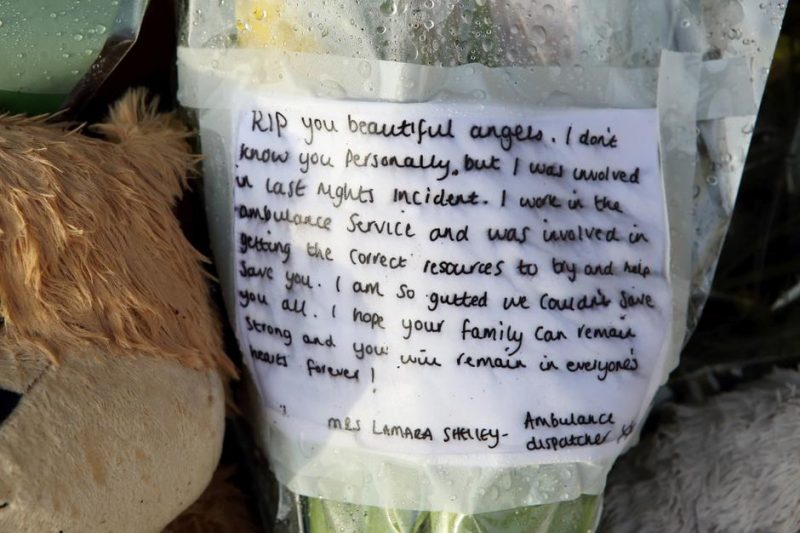 RIP you beautiful angels. I don't
know you Personally, but I was involved
in last nights incident. I work in the
ambulance service and was involved in
getting the correct resources to try and help
save you. I am so gutted we couldn't save
you all. I hope your family can remain
strong and you will remain in everyone's
hearts forever!
MRS LAMARA SHELLEY- Ambulance
dispatcher